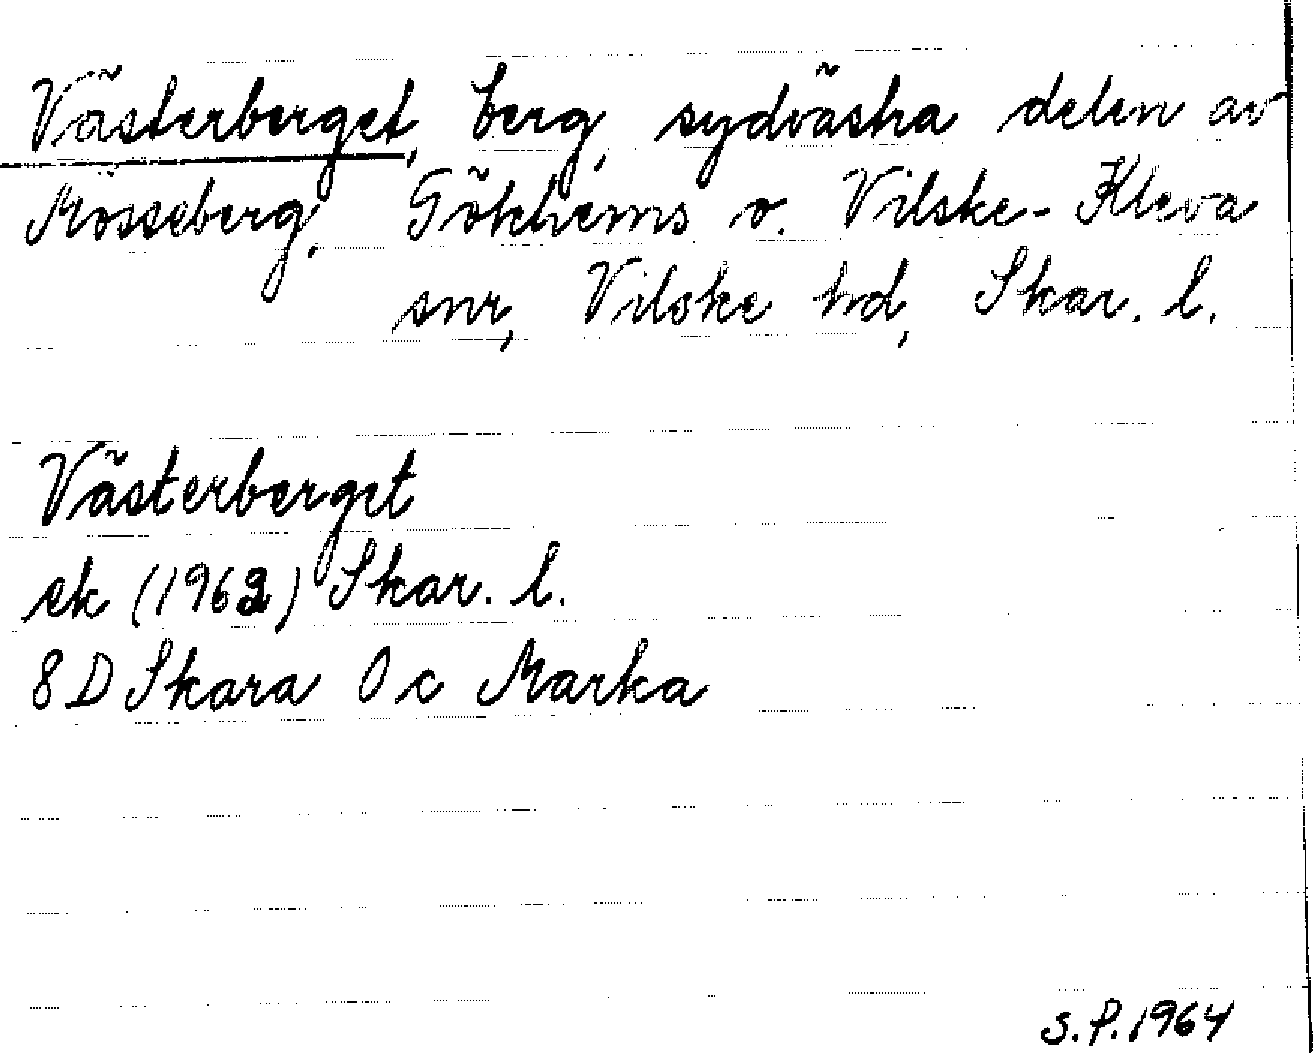 Västerberget, berg, sydvästra delen av
Mösseberg, Gökhems o. Vilske-Kleva
snr, Vilske hd, Skar. l.
Västerberget
ek (1962) Skar. l.
8 D Skara 0 c Marka
S.P. 1964